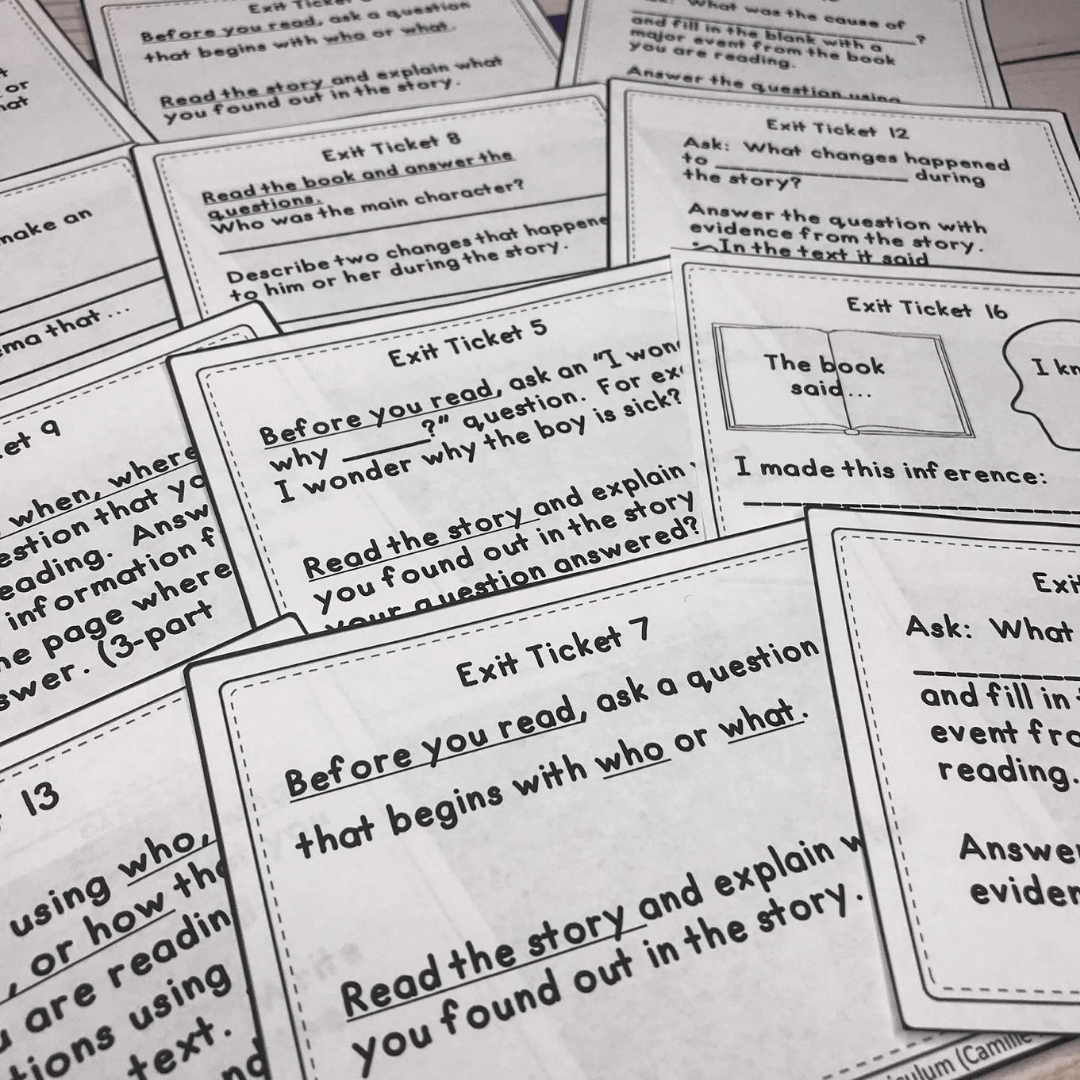 or
hat
Exit Ticket
Before you read, ask a question
that begins with who or what.
Read the story and explain what
you found out in the story.
What was the cause of
?
and fill in the blank with a
major event from the book
you are reading.
Answer the question using
make an
ma that ...
Exit Ticket 8
Read the book and answer the
questions.
Who was the main character?
Describe two changes that happene
to him or her during the story.
Exit Ticket 12
Ask: What changes happened
to ____________ during
the story?
Answer the question with
evidence from the story.
In the text it said
et 9
when, where
estion that yo
eading. Answ
information f
he page where
swer. (3-part
Exit Ticket 5
Before you read, ask an "I won
why ______?" question. For ex
I wonder why the boy is sick?
Read the story and explain
you found out in the story
your question answered?
Exit Ticket 16
The book
said...
I kn
I made this inference:
13
using who,
, or how the
u are readin
tions using
text.
nd
Exit Ticket 7
Before you read, ask a question
that begins with who or what.
Read the story and explain w
you found out in the story.
Exi
Ask: What
and fill in
event fro
reading.
Answe
eviden
culum (Camille